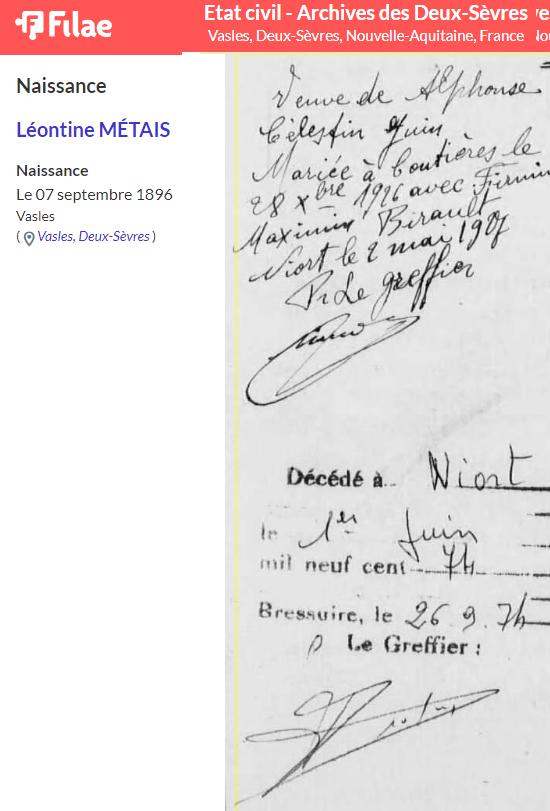 Filae
Etat civil - Archives des Deux-Sèvres
Vasles, Deux-Sèvres, Nouvelle-Aquitaine, France
Naissance
Léontine MÉTAIS
Naissance
Le 07 septembre 1896
Vasles
(Vasles, Deux-Sèvres)
Veuve de Alphonse
Célestin Juin
Mariée à Coutières le
28 xbre 1926 avec Firmin
Maximin Birault
Niort le 2 mai 1927
Pr Le greffier
Décédé à Niort
le 1er Juin
mil neuf cent 74
Bressuire, le 26.9.74
P Le Greffier :